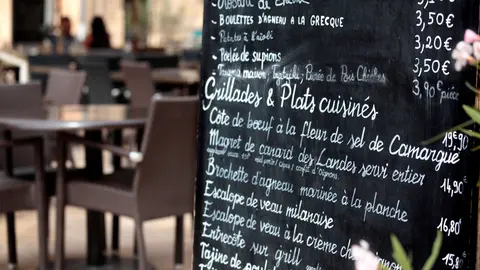 3,50€
BOULETTES D'AGNEAU A LA GRECQUE 3,50€
Patates à l'aïoli 3,20€
Poêlée de supions 3,50€
maison, 3,90€ pièce
Grillades & Plats cuisinés
Côte de bœuf à la fleur de sel de Camargue 19,90
Magret de canard des Landes servi entier
Brochette d'agneau marinée à la planche 14,90
Escalope de veau milanaise
Escalope de veau à la crème 16,80
Entrecôte sur grill
Tajine de 15,8